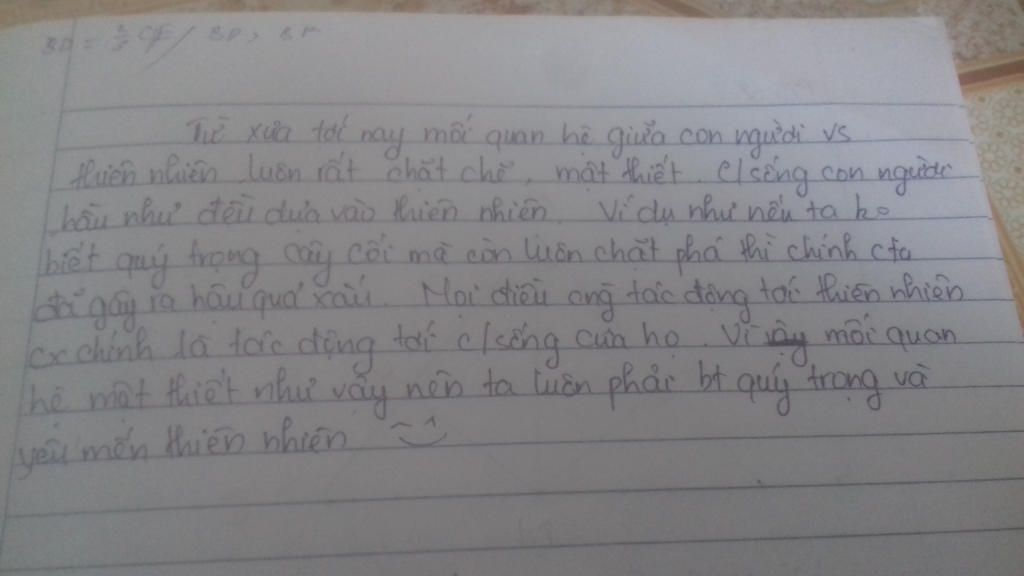 BD = CE / BD,
Từ xưa tới nay mối quan hệ giữa con người vs
thiên nhiên luôn rất chặt chẽ, mật thiết. c/sống con người
hầu như đều dựa vào thiên nhiên. Ví dụ như nếu ta ko
biết quý trọng cây cối mà còn luôn chặt phá thì chính cta
đã gây ra hậu quả xấu. Mọi điều cng tác động tới thiên nhiên
cx chính là tác động tới c/sống của họ. Vì mối quan
hệ mật thiết như vậy nên ta luôn phải bt quý trọng và
yêu mến thiên nhiên